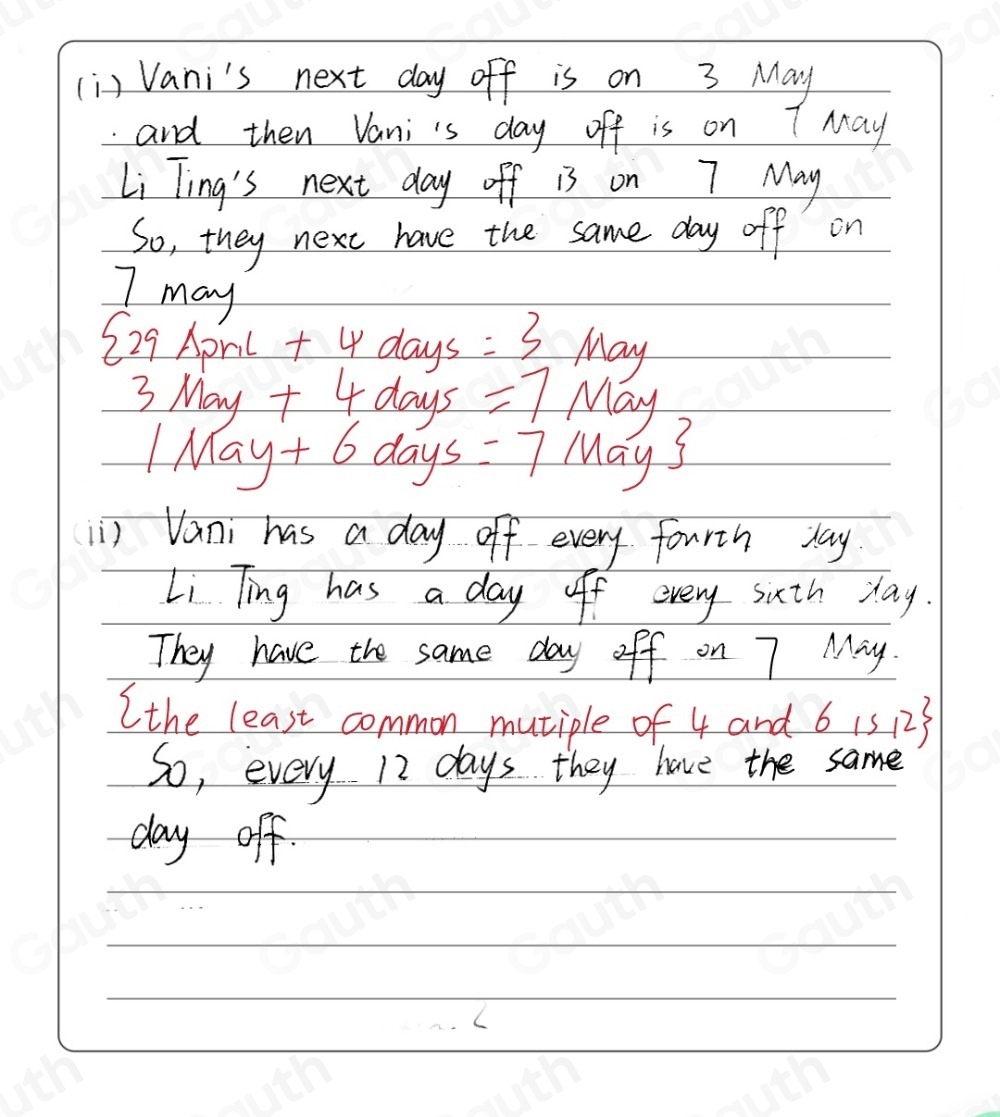 (i) Vani's next day off is on 3 May
. and then Vani's day off is on 7 May
Li Ting's next day off is on 7 May
So, they next have the same day off on
7 may
{29 April + 4 days = 3 May
3 May + 4 days = 7 May
1 May + 6 days = 7 May}
(ii) Vani has a day off every fourth day.
Li Ting has a day off every sixth day.
They have the same day off on 7 May.
{the least common mutiple of 4 and 6 is 12}
So, every 12 days they have the same
day off.